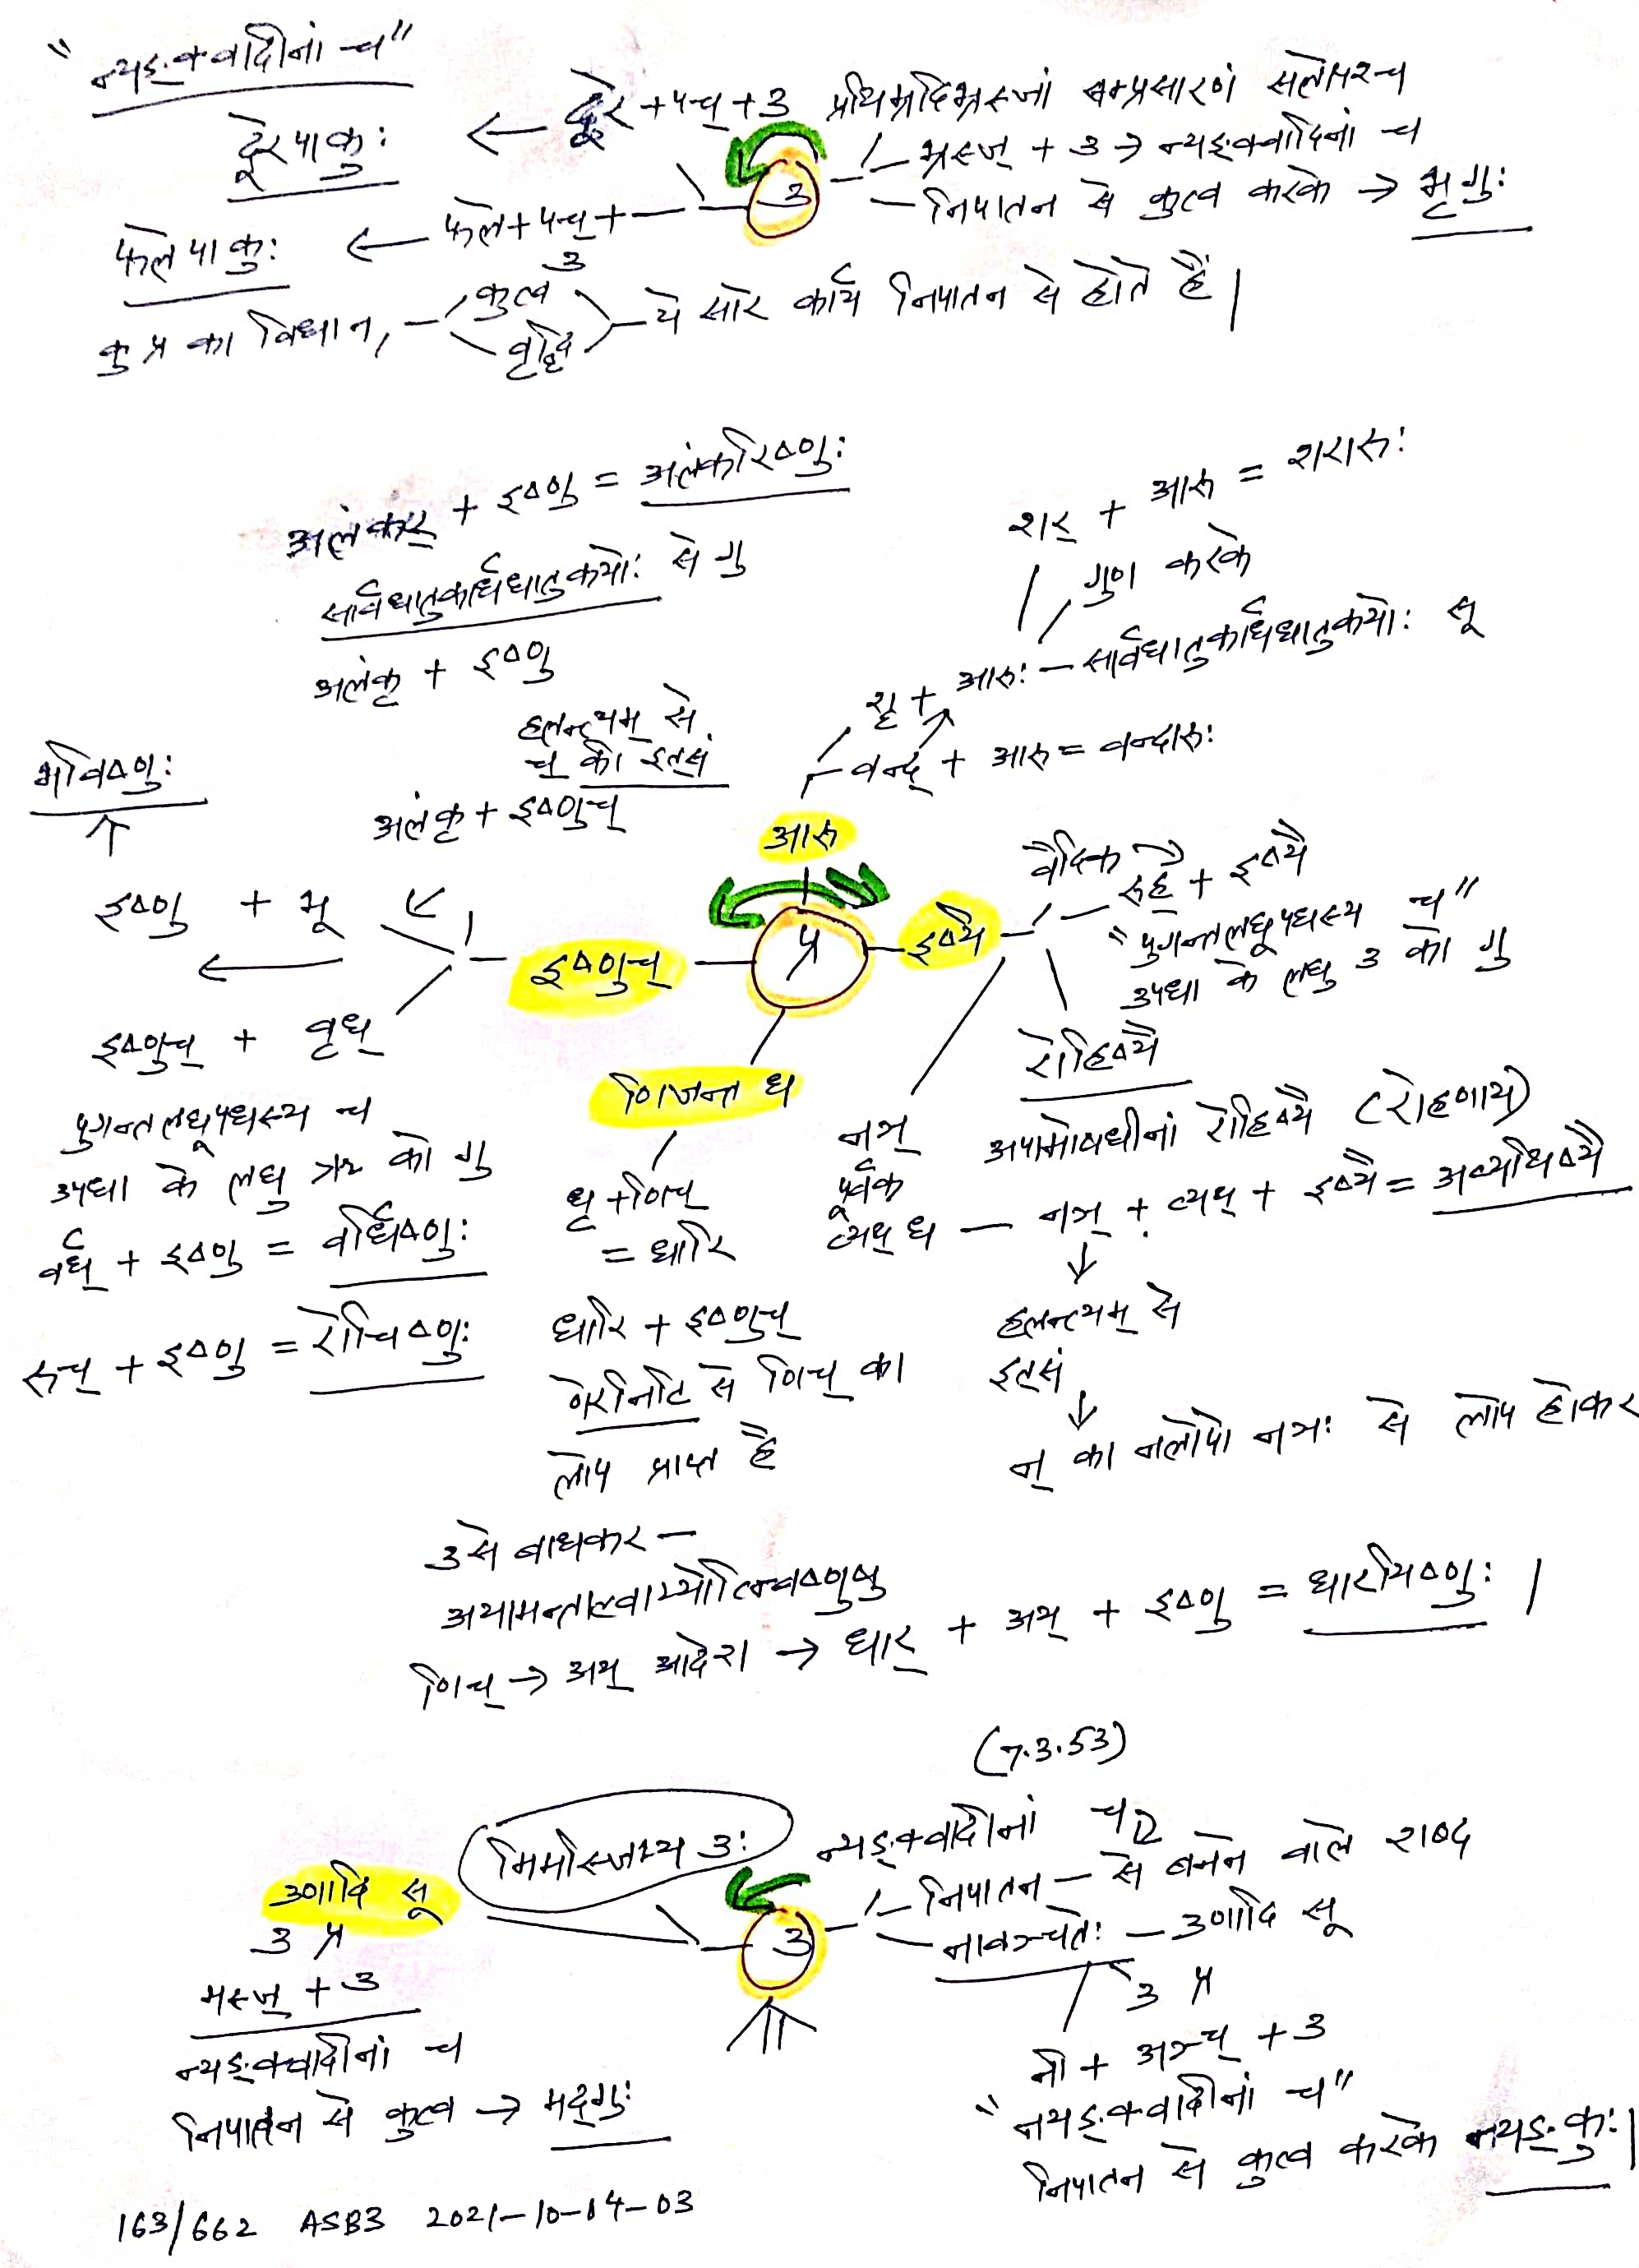 "न्यङ्क्वादीनां च"
दूरेपाकुः ← दूरे + पच् + उ
प्रथिम्रदिभ्रस्जां सम्प्रसारणं सलोपश्च
भ्रस्ज् + उ → न्यङ्क्वादिनां च
उ
निपातन से कुत्व करके → भृगुः
फलेपाकुः ← फले + पच् + उ
कु प्र का विधान, कुत्व वृद्धि – ये सारे कार्य निपातन से होते हैं |
अलंकर् + इष्णु = अलंकरिष्णुः
सार्वधातुकार्धधातुकयोः से गु
अलंकृ + इष्णु
हलन्त्यम् से
च् की इत्सं
अलंकृ + इष्णुच्
शर् + आरु = शरारुः
गुण करके
शॄ + आरुः – सार्वधातुकार्धधातुकयोः सू
वन्द् + आरु = वन्दारुः
आरु
भविष्णुः
↑
इष्णु + भू
इष्णुच् + वृध्
इष्णुच्
प्र
इष्यै
णिजन्त ध
वैदिक
रुह् + इष्यै
"पुगन्तलघूपधस्य च"
उपधा के लघु उ को गु
रोहिष्यै
अपामोषधीनां रोहिष्यै (रोहणाय)
नञ्
पूर्वक
व्यथ् ध – नञ् + व्यथ् + इष्यै = अव्यथिष्यै
↓
हलन्त्यम् से
इत्सं
↓
न् का नलोपो नञः से लोप होकर
पुगन्तलघूपधस्य च
उपधा के लघु ऋ को गु
वर्ध् + इष्णु = वर्धिष्णुः
रुच् + इष्णु = रोचिष्णुः
धृ + णिच्
= धारि
धारि + इष्णुच्
णेरनिटि से णिच् का
लोप प्राप्त है
उसे बाधकर –
अयामन्ताल्वाय्येत्न्विष्णुषु
णिच् → अय् आदेश → धार् + अय् + इष्णु = धारयिष्णुः |
(7.3.53)
न्यङ्क्वादीनां च
निपातन – से बनने वाले शब्द
नावञ्चेः – उणादि सू
उ प्र
नी + अञ्च् + उ
"न्यङ्क्वादीनां च"
निपातन से कुत्व करके न्यङ्कुः |
उ
मिमस्जिभ्य उः
उणादि सू
उ प्र
मस्ज् + उ
न्यङ्क्वादीनां च
निपातन से कुत्व → मद्गुः
163/662 ASB3 2021-10-04-03